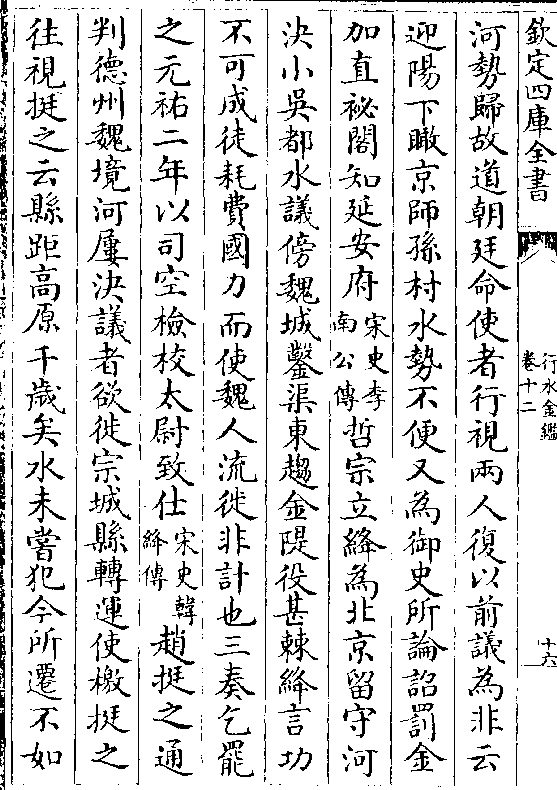 欽定四庫全書
行水金鑑
卷十二
十六
河勢歸故道朝廷命使者行視兩人復以前議為非云
迎陽下瞰京師孫村水勢不便又為御史所論詔罰金
加直祕閣知延安府宋史李南公傳哲宗立絳為北京留守河
決小吳都水議傍魏城鑿渠東趨金隄役甚棘絳言功
不可成徒耗費國力而使魏人流徙非計也三奏乞罷
之元祐二年以司空檢校太尉致仕宋史韓絳傳趙挺之通
判德州魏境河屢決議者欲徙宗城縣轉運使檄挺之
往視挺之云縣距高原千歲矣水未嘗犯今所遷不如